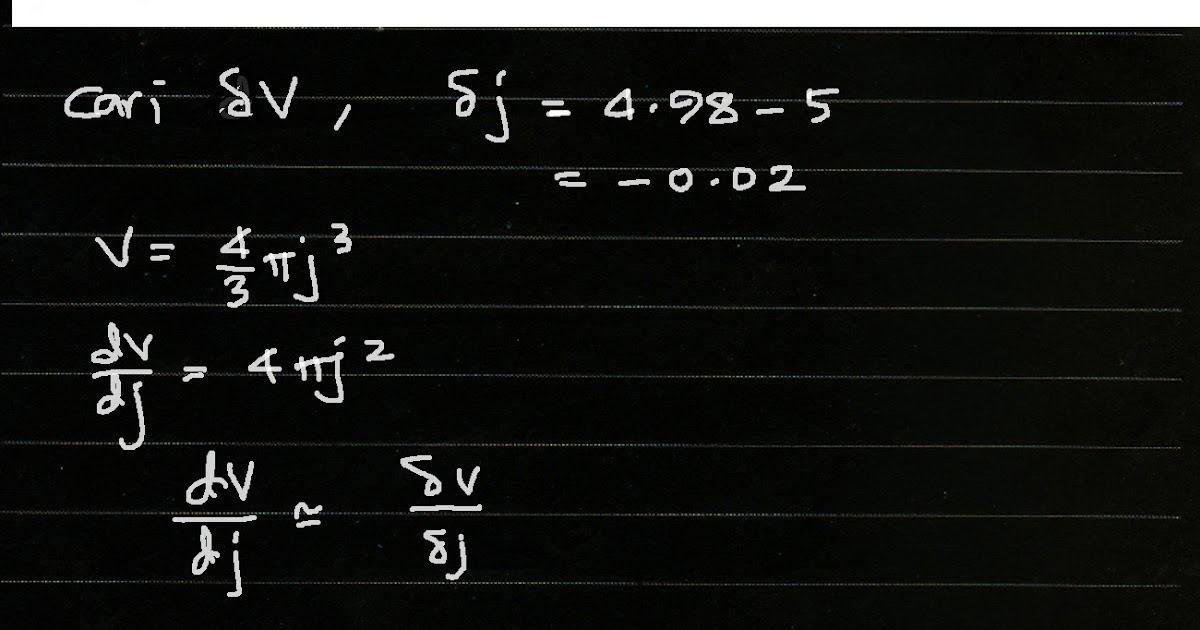 cari δV, δj = 4.98 - 5
= - 0.02
V = 4/3 πj³
dv/dj = 4πj²
dV/dj ≈ δv/δj